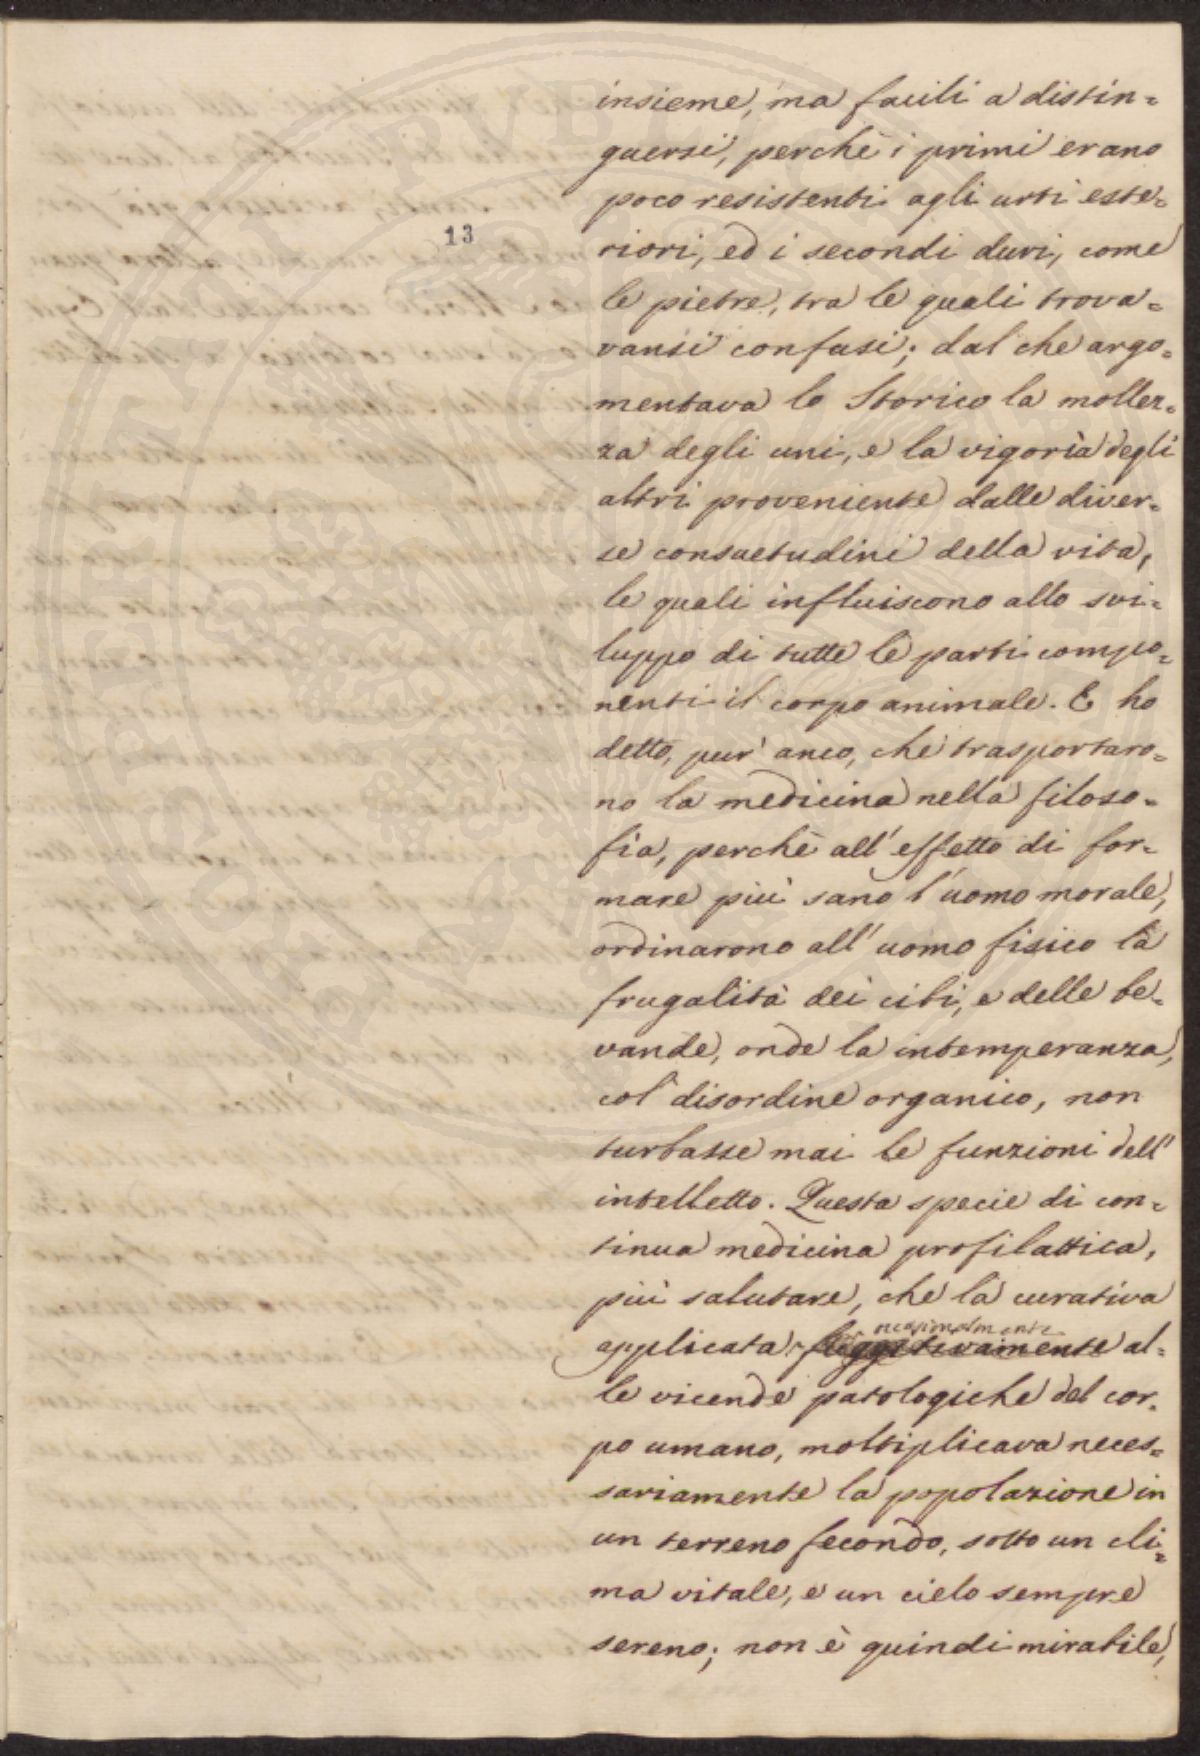 13
insieme, ma facili a distin=
guersi, perchè i primi erano
poco resistenti agli urti este=
riori, ed i secondi duri, come
le pietre, tra le quali trova=
vansi confusi; dal che argo=
mentava lo Storico la mollez=
za degli uni, e la vigorìa degli
altri proveniente dalle diver=
se consuetudini della vita,
le quali influiscono allo svi=
luppo di tutte le parti compo=
nenti il corpo animale. E ho
detto, pur' anco, che trasportaro=
no la medicina nella filoso=
fia, perchè all' effetto di for=
mare più sano l'uomo morale,
ordinarono all' uomo fisico la
frugalità dei cibi, e delle be=
vande, onde la intemperanza,
col disordine organico, non
turbasse mai le funzioni dell'
intelletto. Questa specie di con=
tinua medicina profilattica,
più salutare, che la curativa
applicata al=
le vicende patologiche del cor=
po umano, moltiplicava neces=
sariamente la popolazione in
un terreno fecondo, sotto un cli=
ma vitale, e un cielo sempre
sereno; non è quindi mirabile,